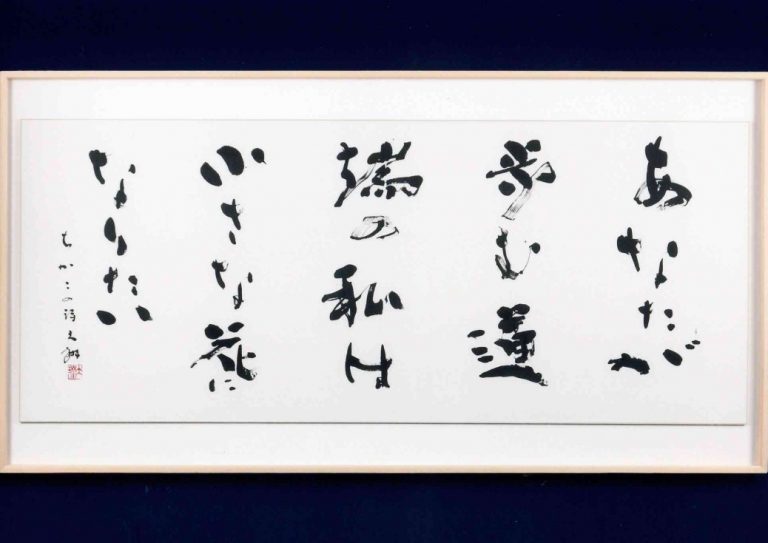 あなたが
歩む道
端の私は
小さな花に
なりたい
ちかこの詩